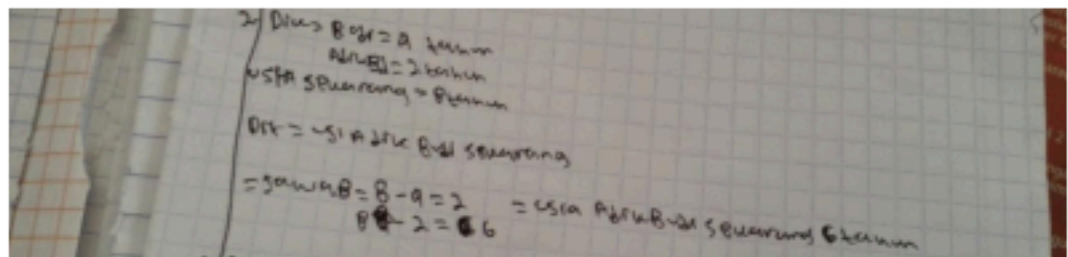 2/ Dik = Budi = 9 tahun
Adik Budi = 2 tahun
usia sekarang = 8 tahun
Dit = usia adik Budi sekarang
= Jawab = 8 - 9 = 2 = usia Adik Budi sekarang 6 tahun
8 - 2 = 6